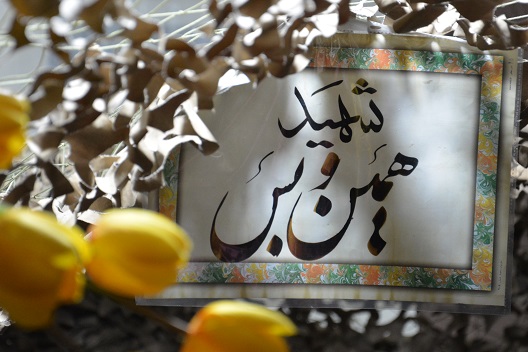 شهید
همین و بس